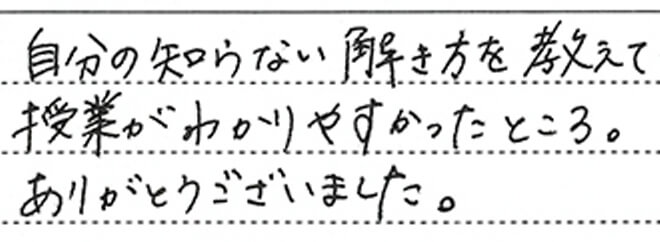 自分の知らない解き方を教えて
授業がわかりやすかったところ。
ありがとうございました。